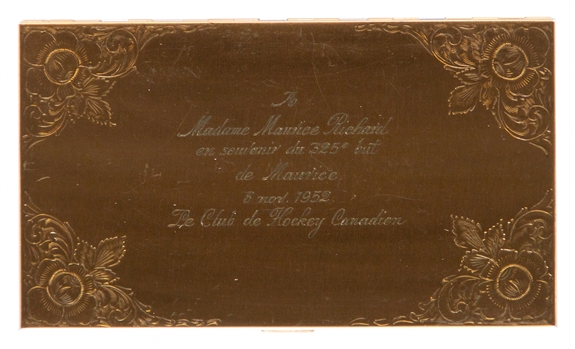 To
Madame Maurice Richard
en souvenir du 325e but
de Maurice,
8 nov. 1952
Le Club de Hockey Canadien